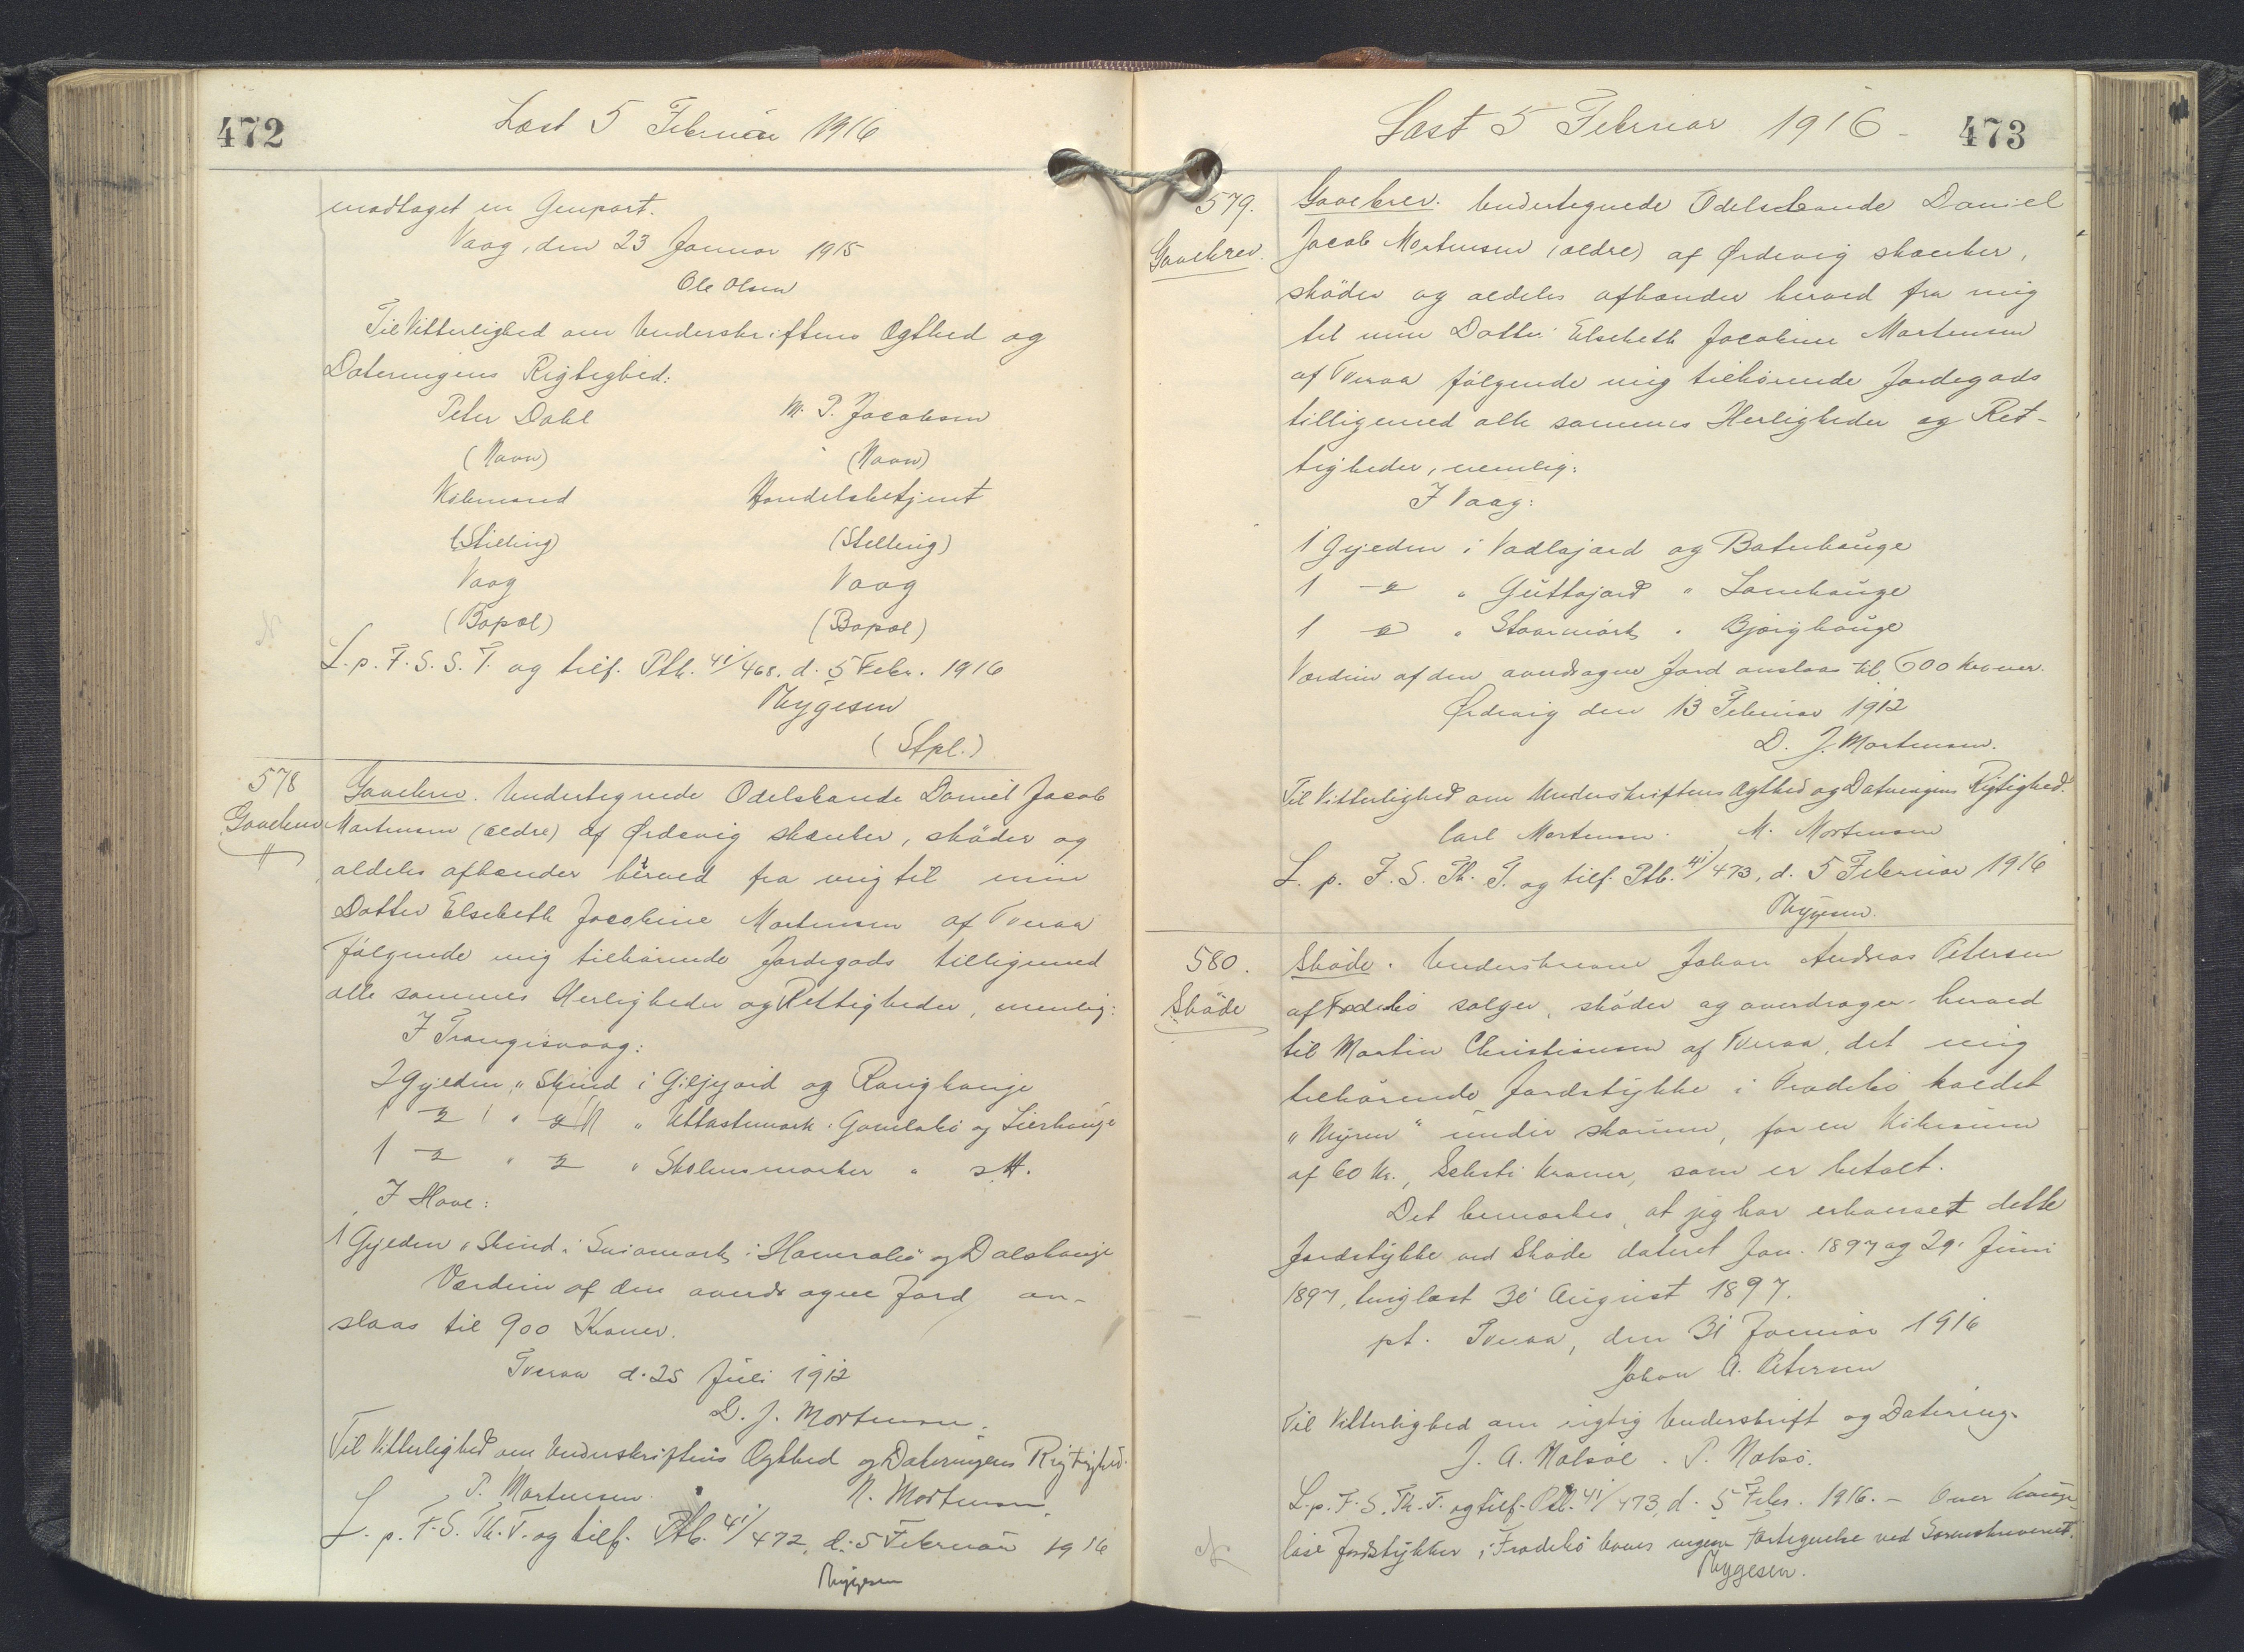 472
Læst 5 Februar 1916
modtaget en Genpart.
Vaag, den 23 Januar 1915
Ole Olsen
Til Vitterlighed om Underskriftens Ægthed og
Dateringens Rigtighed:
Peter Dahl M. P. Jacobsen
(Navn) (Navn)
Købmand Handelsbetjent
(Stilling) (Stilling)
Vaag Vaag
(Bopæl) (Bopæl)
L. p. F. S. S. T. og tilf. Ptb. 41/468. d. 5 Febr. 1916
Thygesen
(Stpl.)
578
Gavebrev
Gavebrev. Undertegnede Odelsbonde Daniel Jacob
Mortensen (ældre) af Ørdevig skænker, skøder og
aldeles afhænder herved fra mig til min
Datter Elsebeth Jacobine Mortensen af Tveraa
følgende mig tilhørende Jordegods tilligemed
alle sammes Herligheder og Rettigheder, nemlig:
I Trangisvaag:
2 Gylden " Skind i Giljyard og Ranghauge
1 " " " Uttastemark
1 " " " Stolensmarker " st.
I Hove:
1 Gylden " Skind i i og Dalshauge
Værdien af den overdragne Jord an-
slaas til 900 Kroner.
Tveraa d. 25 Juli 1912
D. J. Mortensen.
Til Vitterlighed om Underskriftens Ægthed og Dateringens Rigtighed.
P. Mortensen. N. Mortensen.
L. p. F. S. Th. T. og tilf. Ptb. 41/472, d. 5 Februar 1916
Thygesen
Læst 5 Februar 1916 -
473
579.
Gavebrev.
Gavebrev. Undertegnede Odelsbonde Daniel
Jacob Mortensen (ældre) af Ørdevig skænker,
skøder og aldeles afhænder herved fra mig
til min Datter Elsebeth Jacobine Mortensen
af Tveraa følgende mig tilhørende Jordegods
tilligemed alle sammes Herligheder og Ret-
tigheder, nemlig:
I Vaag:
1 Gylden i Vadlajard og Botnhauge
1 " " Guttajard " Lamhauge
1 " " Staarmark " Bjærghauge
Værdien af den overdragne Jord anslaas til 600 Kroner.
Ørdevig den 13 Februar 1912
D. J. Mortensen.
Til Vitterlighed om Underskriftens Ægthed og Dateringens Rigtighed.
Carl Mortensen. M. Mortensen
L. p. F. S. Th. T. og tilf. Ptb. 41/473, d. 5 Februar 1916
Thygesen.
580.
Skøde
Skøde. Underskrevne Johan Andreas Petersen
af Frodebø sælger, skøder og overdrager herved
til Martin Christiansen af Tveraa, det mig
tilhørende Jordstykke i Frodebø kaldet
"Myren" under skarun, for en Købesum
af 60 Kr., Seksti Kroner, som er betalt.
Det bemærkes, at jeg har erhvervet dette
Jordstykke ved Skøde dateret Jan. 1897 og 29' Juni
1897, tinglæst 30' August 1897.
pt. Tveraa, den 31 Januar 1916
Johan A. Petersen
Til Vitterlighed om rigtig Underskrift og Datering.
J. A. Nolsøe. P. Nolsø.
L. p. F. S. Th. T. og tilf. Ptb. 41/473, d. 5 Febr. 1916. - Over hauge-
løse Jordstykker i Frodebø haves ingen Fortegnelse ved Sorenskriveriet.
Thygesen.